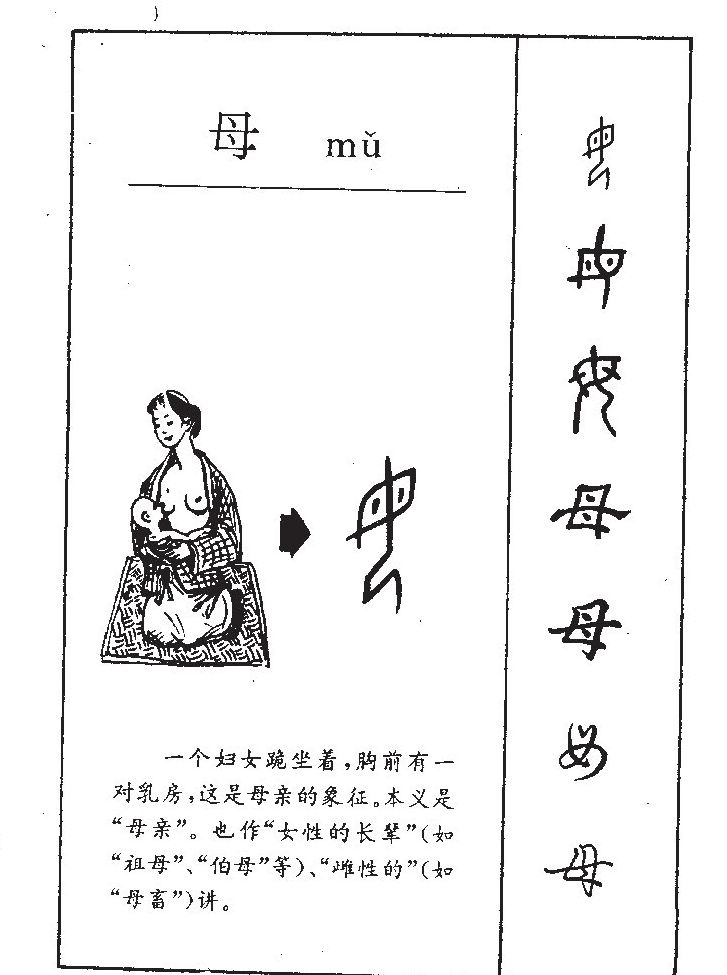 母 mǔ
一个妇女跪坐着，胸前有一
对乳房，这是母亲的象征。本义是
“母亲”。也作“女性的长辈”(如
“祖母”、“伯母”等)、“雌性的”(如
“母畜”)讲。
母
母
母